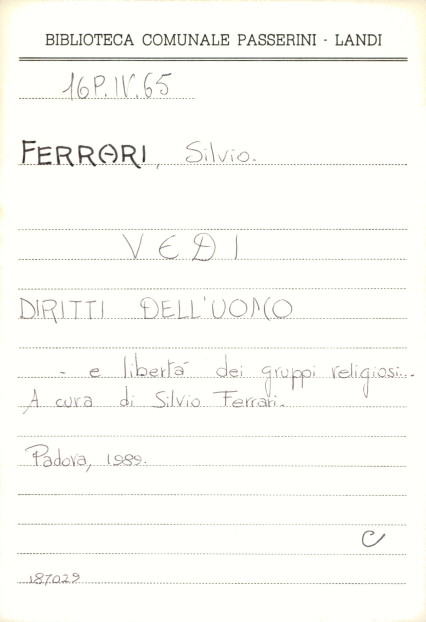 BIBLIOTECA COMUNALE PASSERINI - LANDI
16P.IV.65
FERRARI, Silvio.
VEDI
DIRITTI DELL'UOMO
- e libertà dei gruppi religiosi...
A cura di Silvio Ferrari.
Padova, 1989.
C
187029